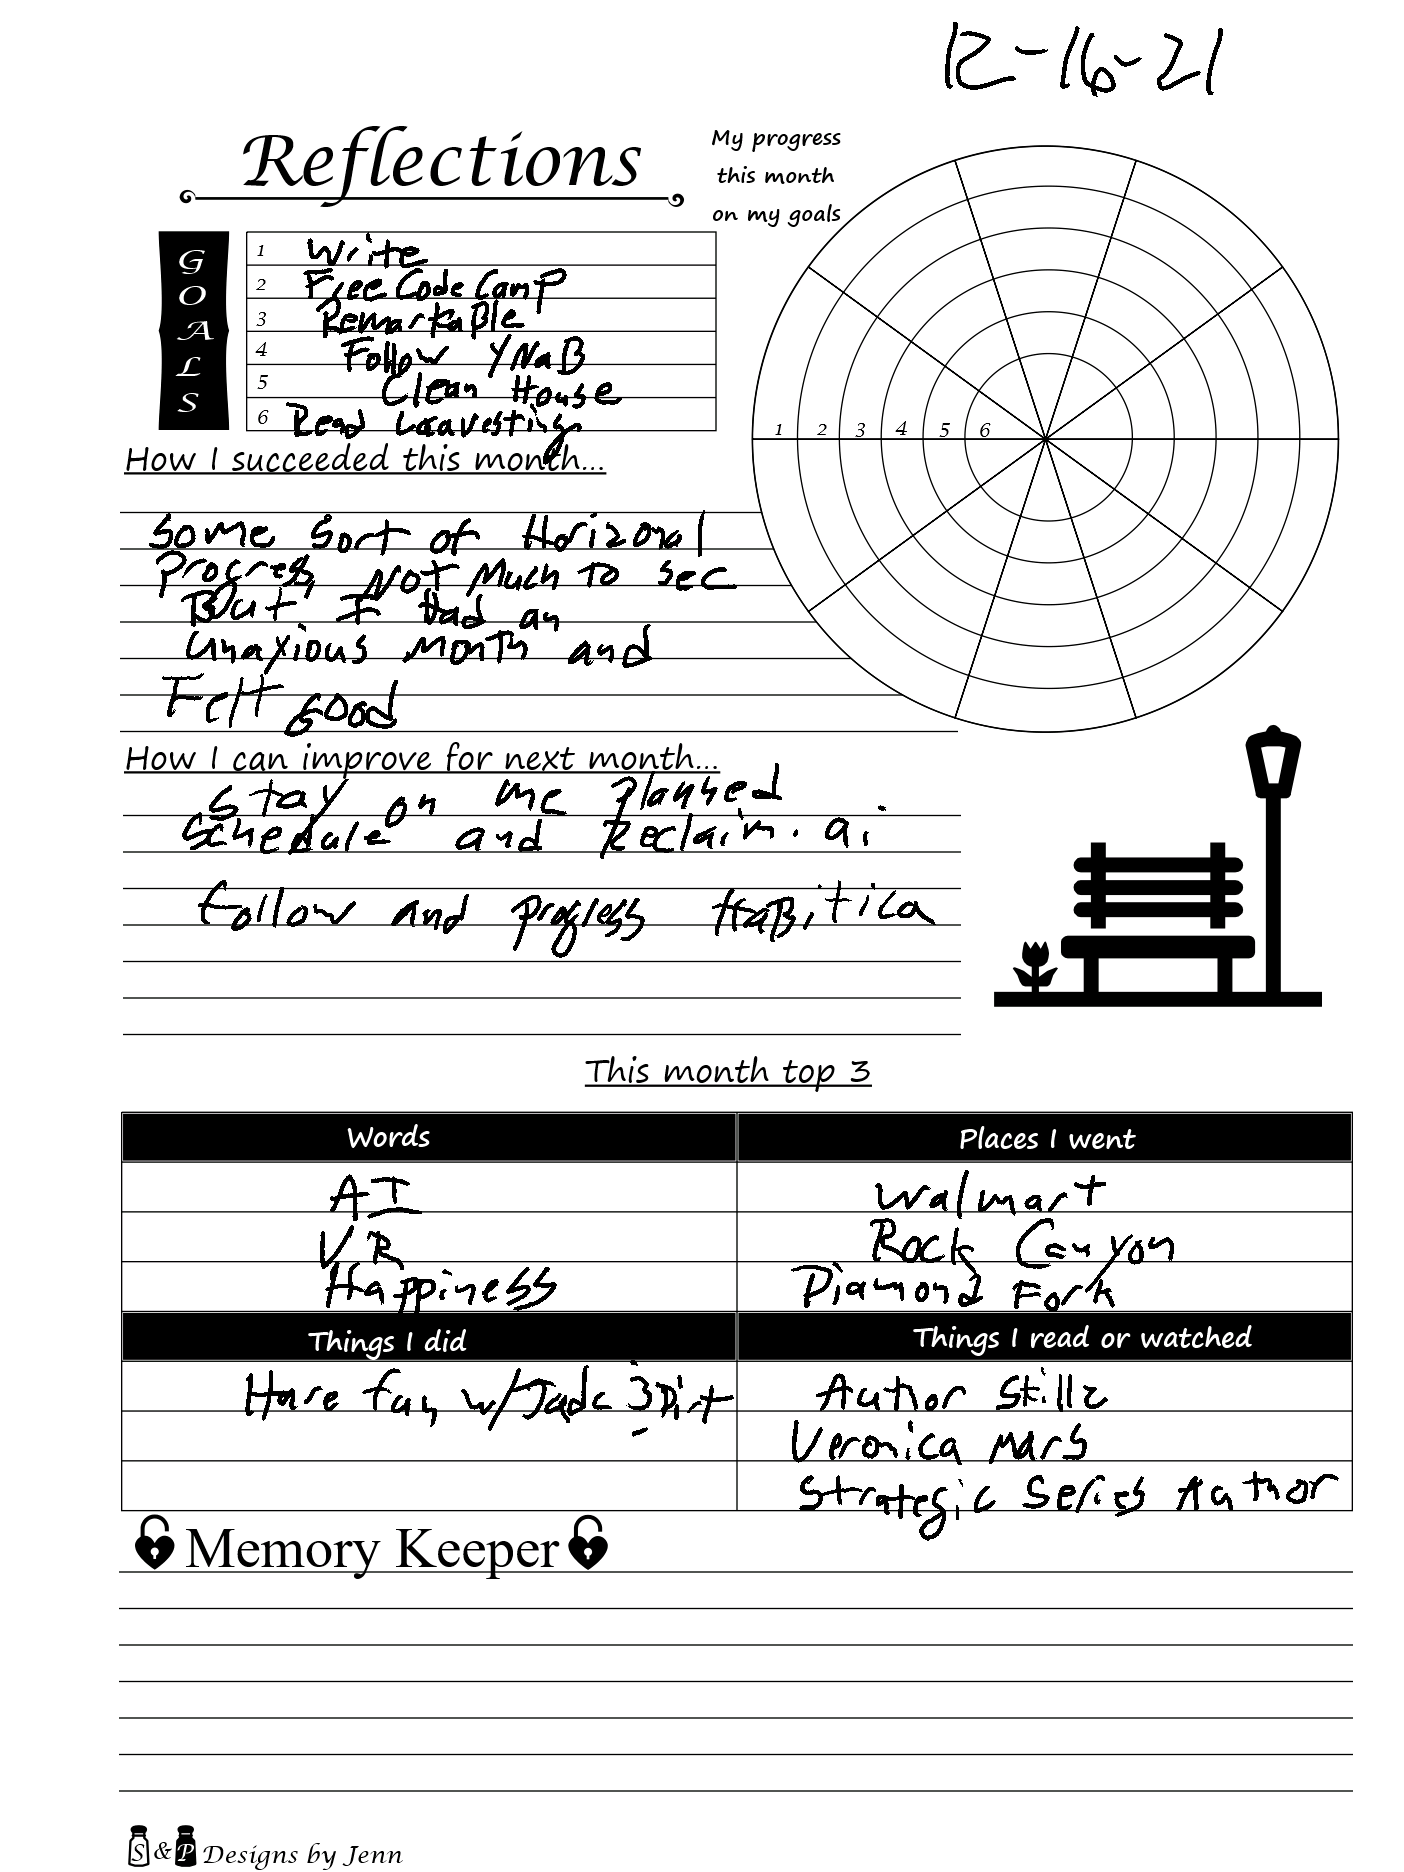 12-16-21
Reflections
My progress
this month
on my goals
GOALS
1 Write
2 Free Code Camp
3 RemarkaBle
4 Follow YNaB
5 Clean House
6 Read
1 2 3 4 5 6
How I succeeded this month...
Some sort of Horizonal
Progress, Not Much To see
But I Had an
unaxious Month and
Felt good
How I can improve for next month...
Stay on me Planned
Schedule and Reclaim.ai
Follow and progress HaBitica
This month top 3
Words
Places I went
AI
Walmart
VR
Rock Canyon
Happiness
Diamond Fork
Things I did
Things I read or watched
Have fun w/Jade 3Dirt
Author Skillz
Veronica Mars
Strategic Series Author
Memory Keeper
S&P Designs by Jenn